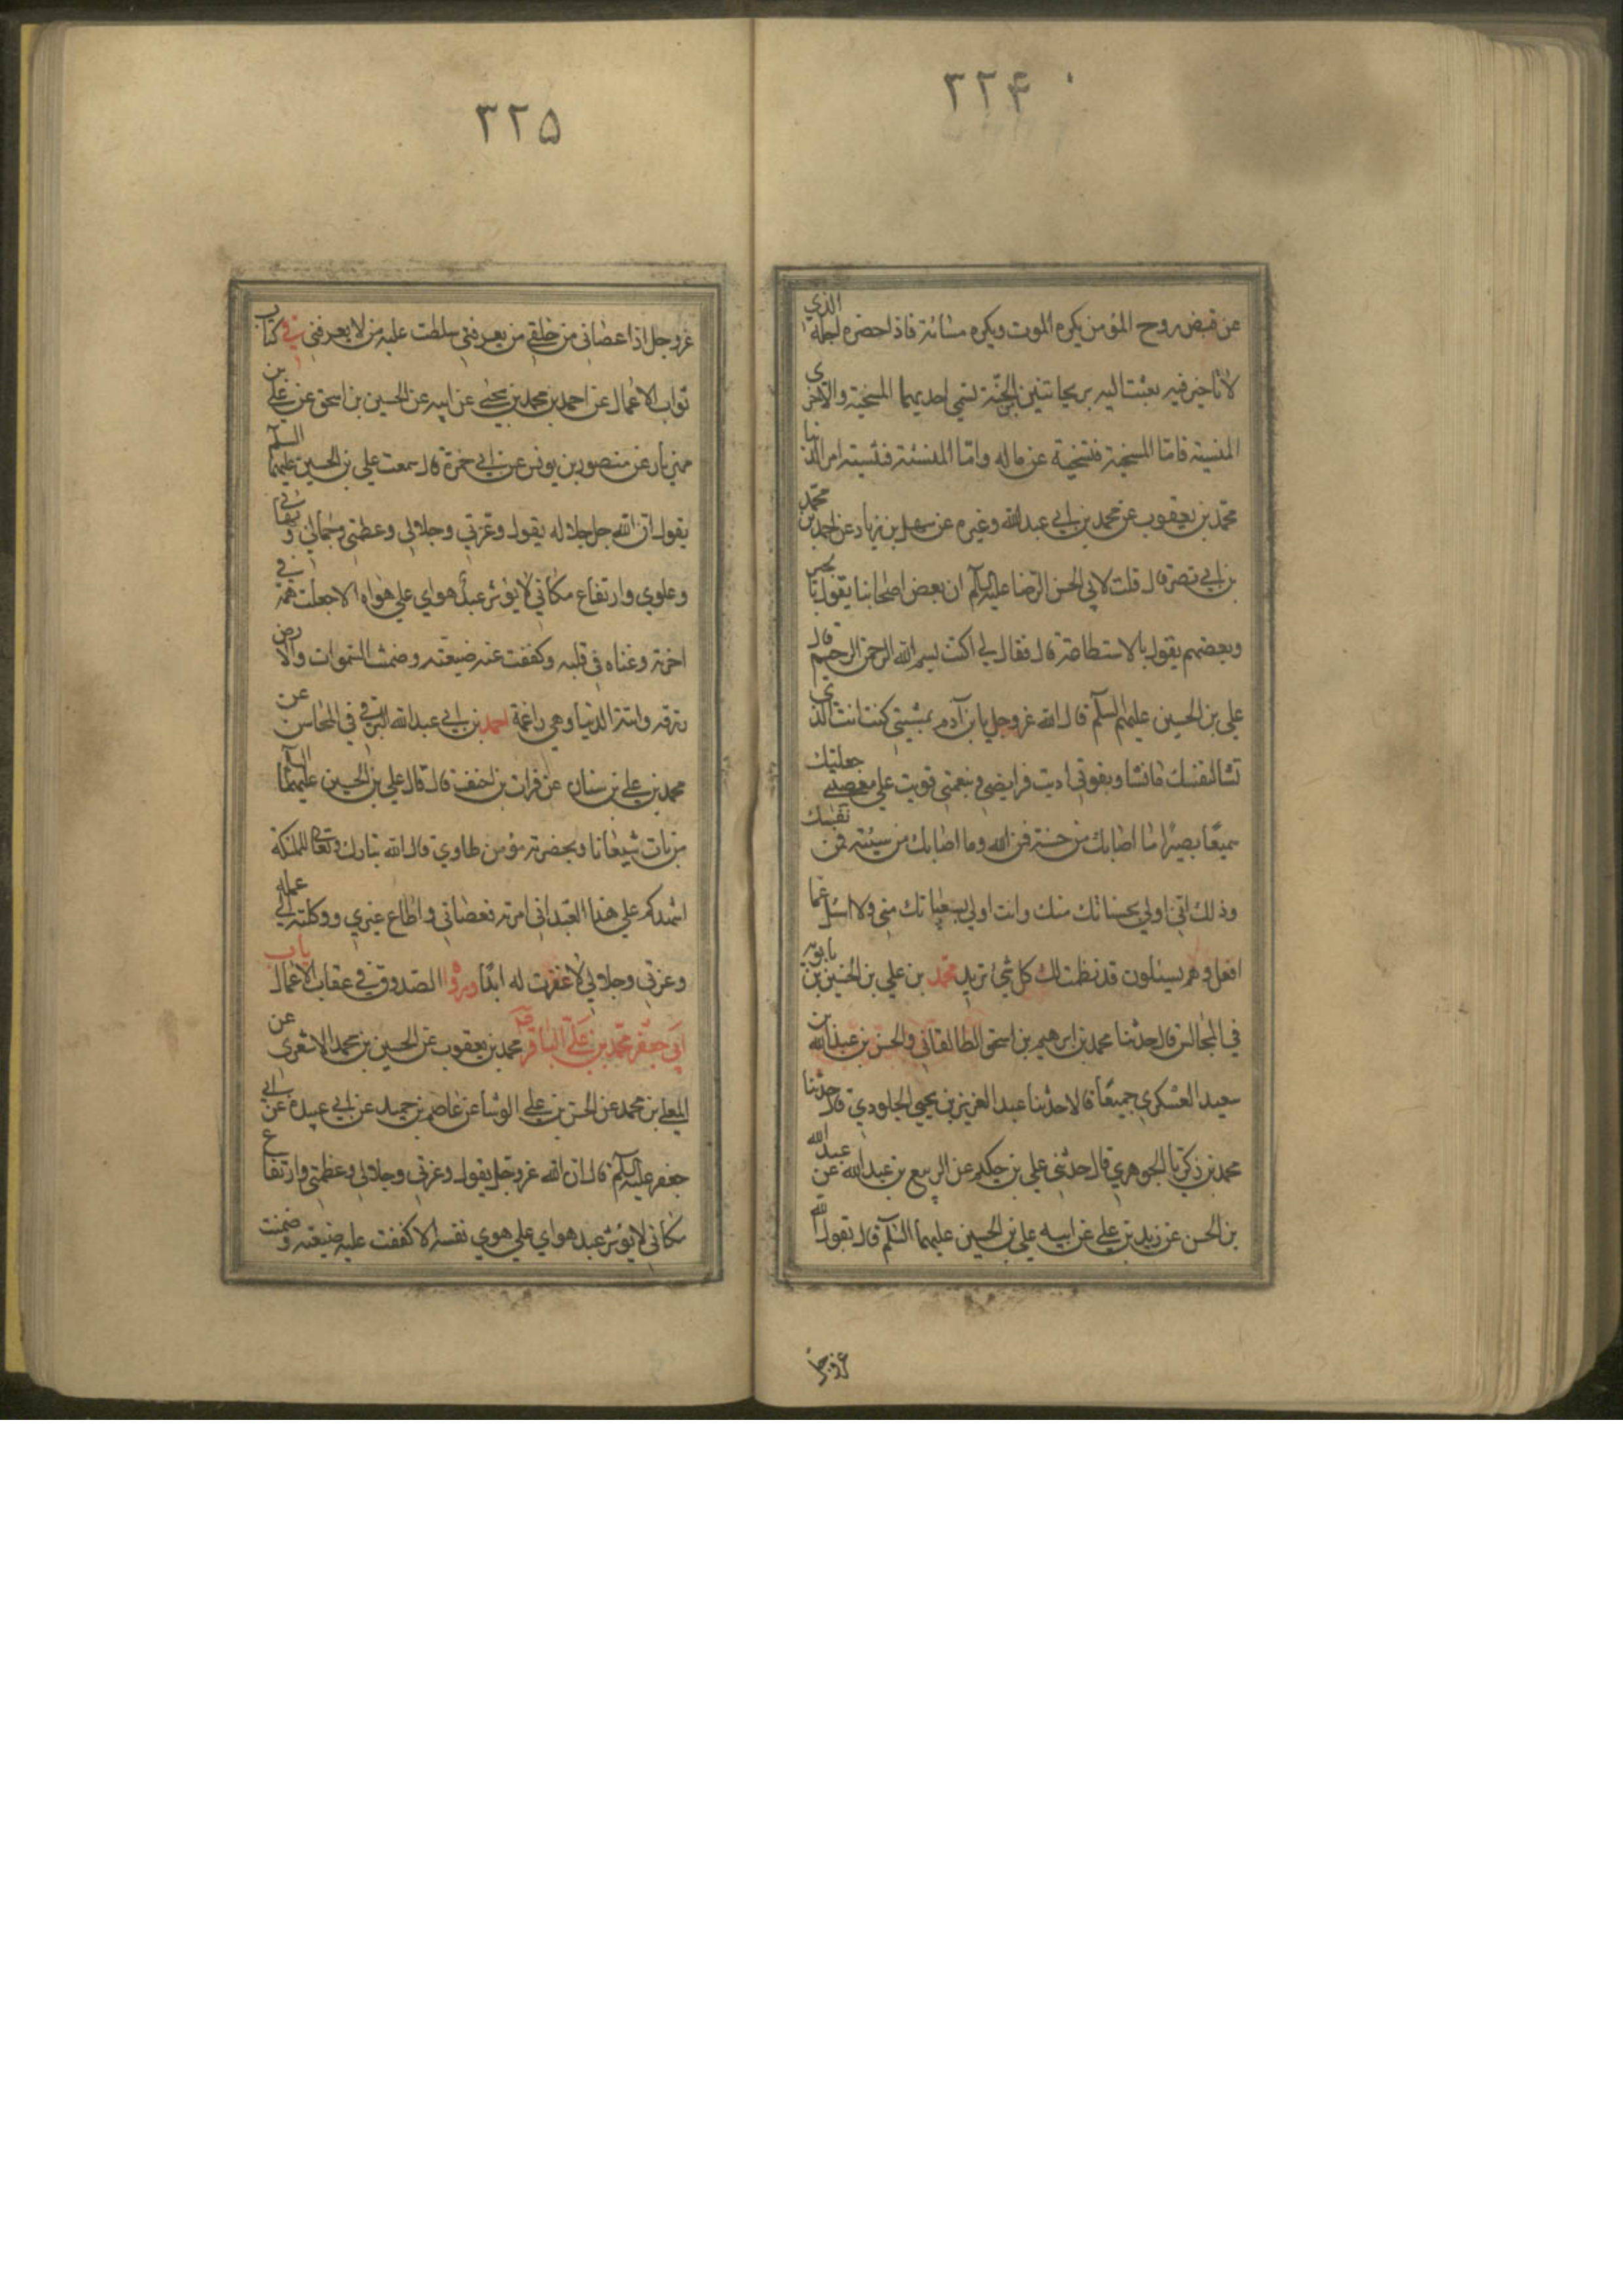 ٣٢۴
عن قبض روح المؤمن يكره الموت ويكره مسائته فاذا حضره اجله الذي
لا تاخير فيه بعثت اليه بريحانتين من الجنة تسمي احديهما المسخية والاخرى
المنسية فامّا المسخية فتسخية عن ماله وامّا المنسئة فتنسيه امر الدنيا
محمّد بن يعقوب عن محمد بن ابي عبدالله وغيره عن سهل بن زياد عن احمد بن محمّد
بن ابي نصر قال قلت لابي الحسن الرضا عليه السلم ان بعض اصحابنا يقول بالجبر
وبعضهم يقول بالاستطاعة قال فقال لي اكتب بسم الله الرحمن الرحيم قال
علي بن الحسين عليهم السلم قال الله عزوجل يا بن آدم بمشيتي كنت انت الذي
تشا لنفسك ما تشا وبقوتي اديت فرايضي وبنعمتي قويت علي معصيتي جعلتك
سميعًا بصيرًا ما اصابك من حسنة فمن الله وما اصابك من سيئته فمن نفسك
وذلك انّي اولي بحسناتك منك وانت اولي بسيئاتك مني ولا اسئل عما
افعل وهم يسئلون قد نظمت لك كل شيئ تريد محمّد بن علي بن الحسين بن بابويه
في المجالس قال حدثنا محمد بن ابرهيم بن اسحق الطالقاني والحسن بن عبدالله بن
سعيد العسكري جميعًا قالا حدثنا عبد العزيز بن يحيي الجلودي قال حدثنا
محمد بن زكريا الجوهري قال حدثني علي بن حكيم عن الربيع بن عبدالله عن عبدالله
بن الحسن عن زيد بن علي عن ابيه علي بن الحسين عليهما السلم قال يقول الله
عزوجل
٣٢۵
عزوجل اذا عصاني من خلقي من يعرفني سلطت عليه من لا يعرفني وفي كتاب
ثواب الاعمال عن احمد بن محمد بن يحيي عن ابيه عن الحسين بن اسحق عن علي بن
مهزيار عن منصور بن يونس عن ابي حمزة قال سمعت علي بن الحسين عليهما السلم
يقول انّ الله جل جلاله يقول وعزتي وجلالي وعظمتي وجمالي وبهائي
وعلوي وارتفاع مكاني لا يؤثر عبدٌ هواي علي هواه الا جعلت همّه في
اخرته وغناه في قلبه وكففت عنه ضيعته وضمنت السموات والارض
رزقه واتته الدنيا وهي راغمة احمد بن ابي عبدالله البرقي في المحاسن عن
محمد بن علي بن سنان عن فرات بن احنف قال قال علي بن الحسين عليهما السلم
من بات شبعانا وبحضرته مؤمن طاوي قال الله تبارك وتعالي للملئكة
اشهدكم علي هذا العبد اني امرته فعصاني واطاع غيري ووكلته الي عمله
وعزتي وجلالي لا غفرت له ابدًا ورواه الصدوق في عقاب الاعمال باب
ابي جعفر محمّد بن علي الباقر محمد بن يعقوب عن الحسين بن محمد الاشعري عن
المعلي بن محمد عن الحسن بن علي الوشا عن عاصم بن حميد عن ابي عبيدة عن ابي
جعفر عليه السلم قال ان الله عزوجل يقول وعزتي وجلالي وعظمتي وارتفاع
مكاني لا يؤثر عبد هواي علي هوي نفسه الا كففت عليه ضيعته وضمنت